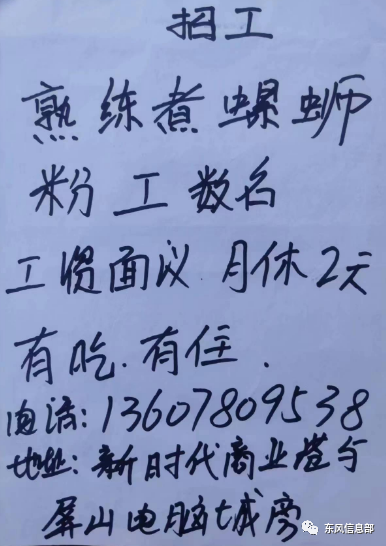 招工
熟练煮螺蛳
粉工数名
工资面议 月休2天
有吃.有住.
电话:13607809538
地址:新时代商业港与
屏山电脑城旁
东风信息部